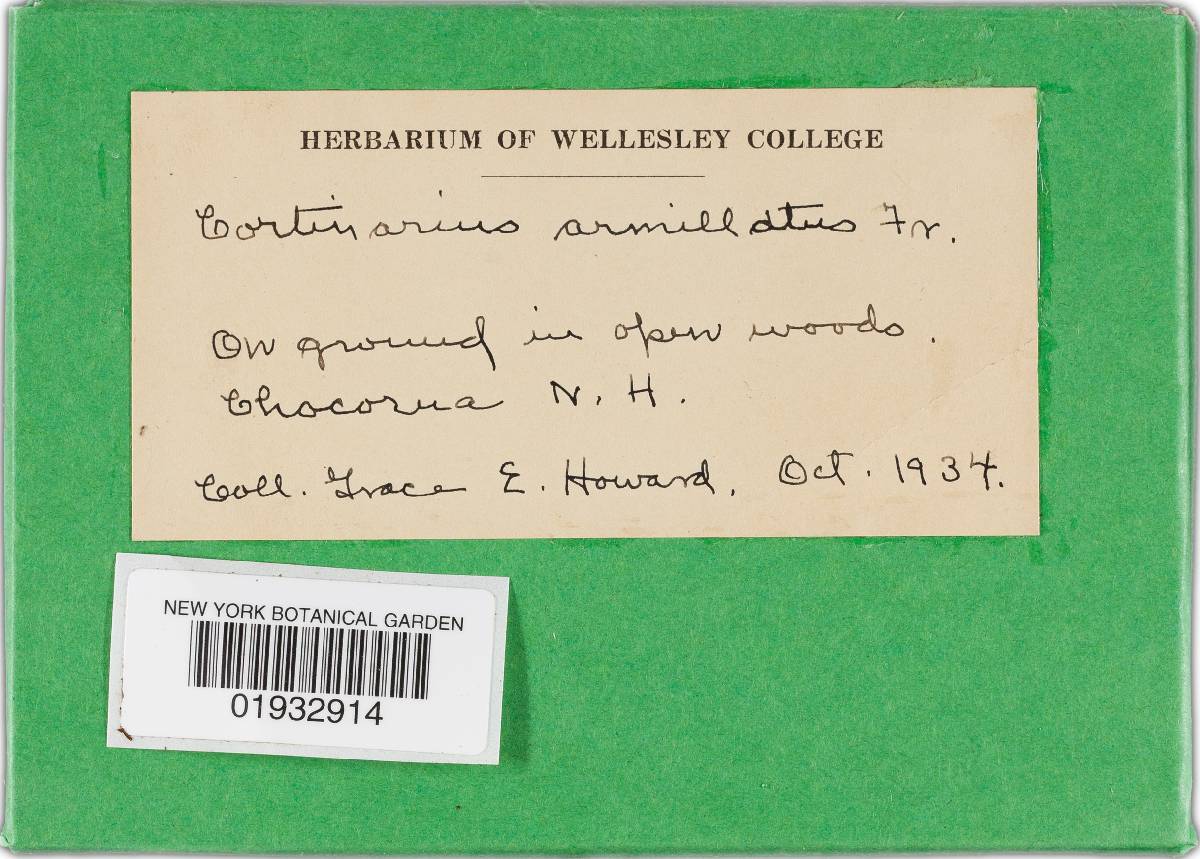 HERBARIUM OF WELLESLEY COLLEGE
Cortinarius armillatus Fr.
On ground in open woods.
Chocorua N. H.
Coll. Grace E. Howard. Oct. 1934.
NEW YORK BOTANICAL GARDEN
01932914